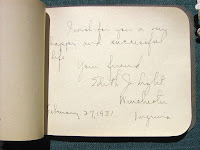 I wish for you a very
happy and successful
life
Your friend
Edith J. Light
Winchester
February 27, 1931. Virginia